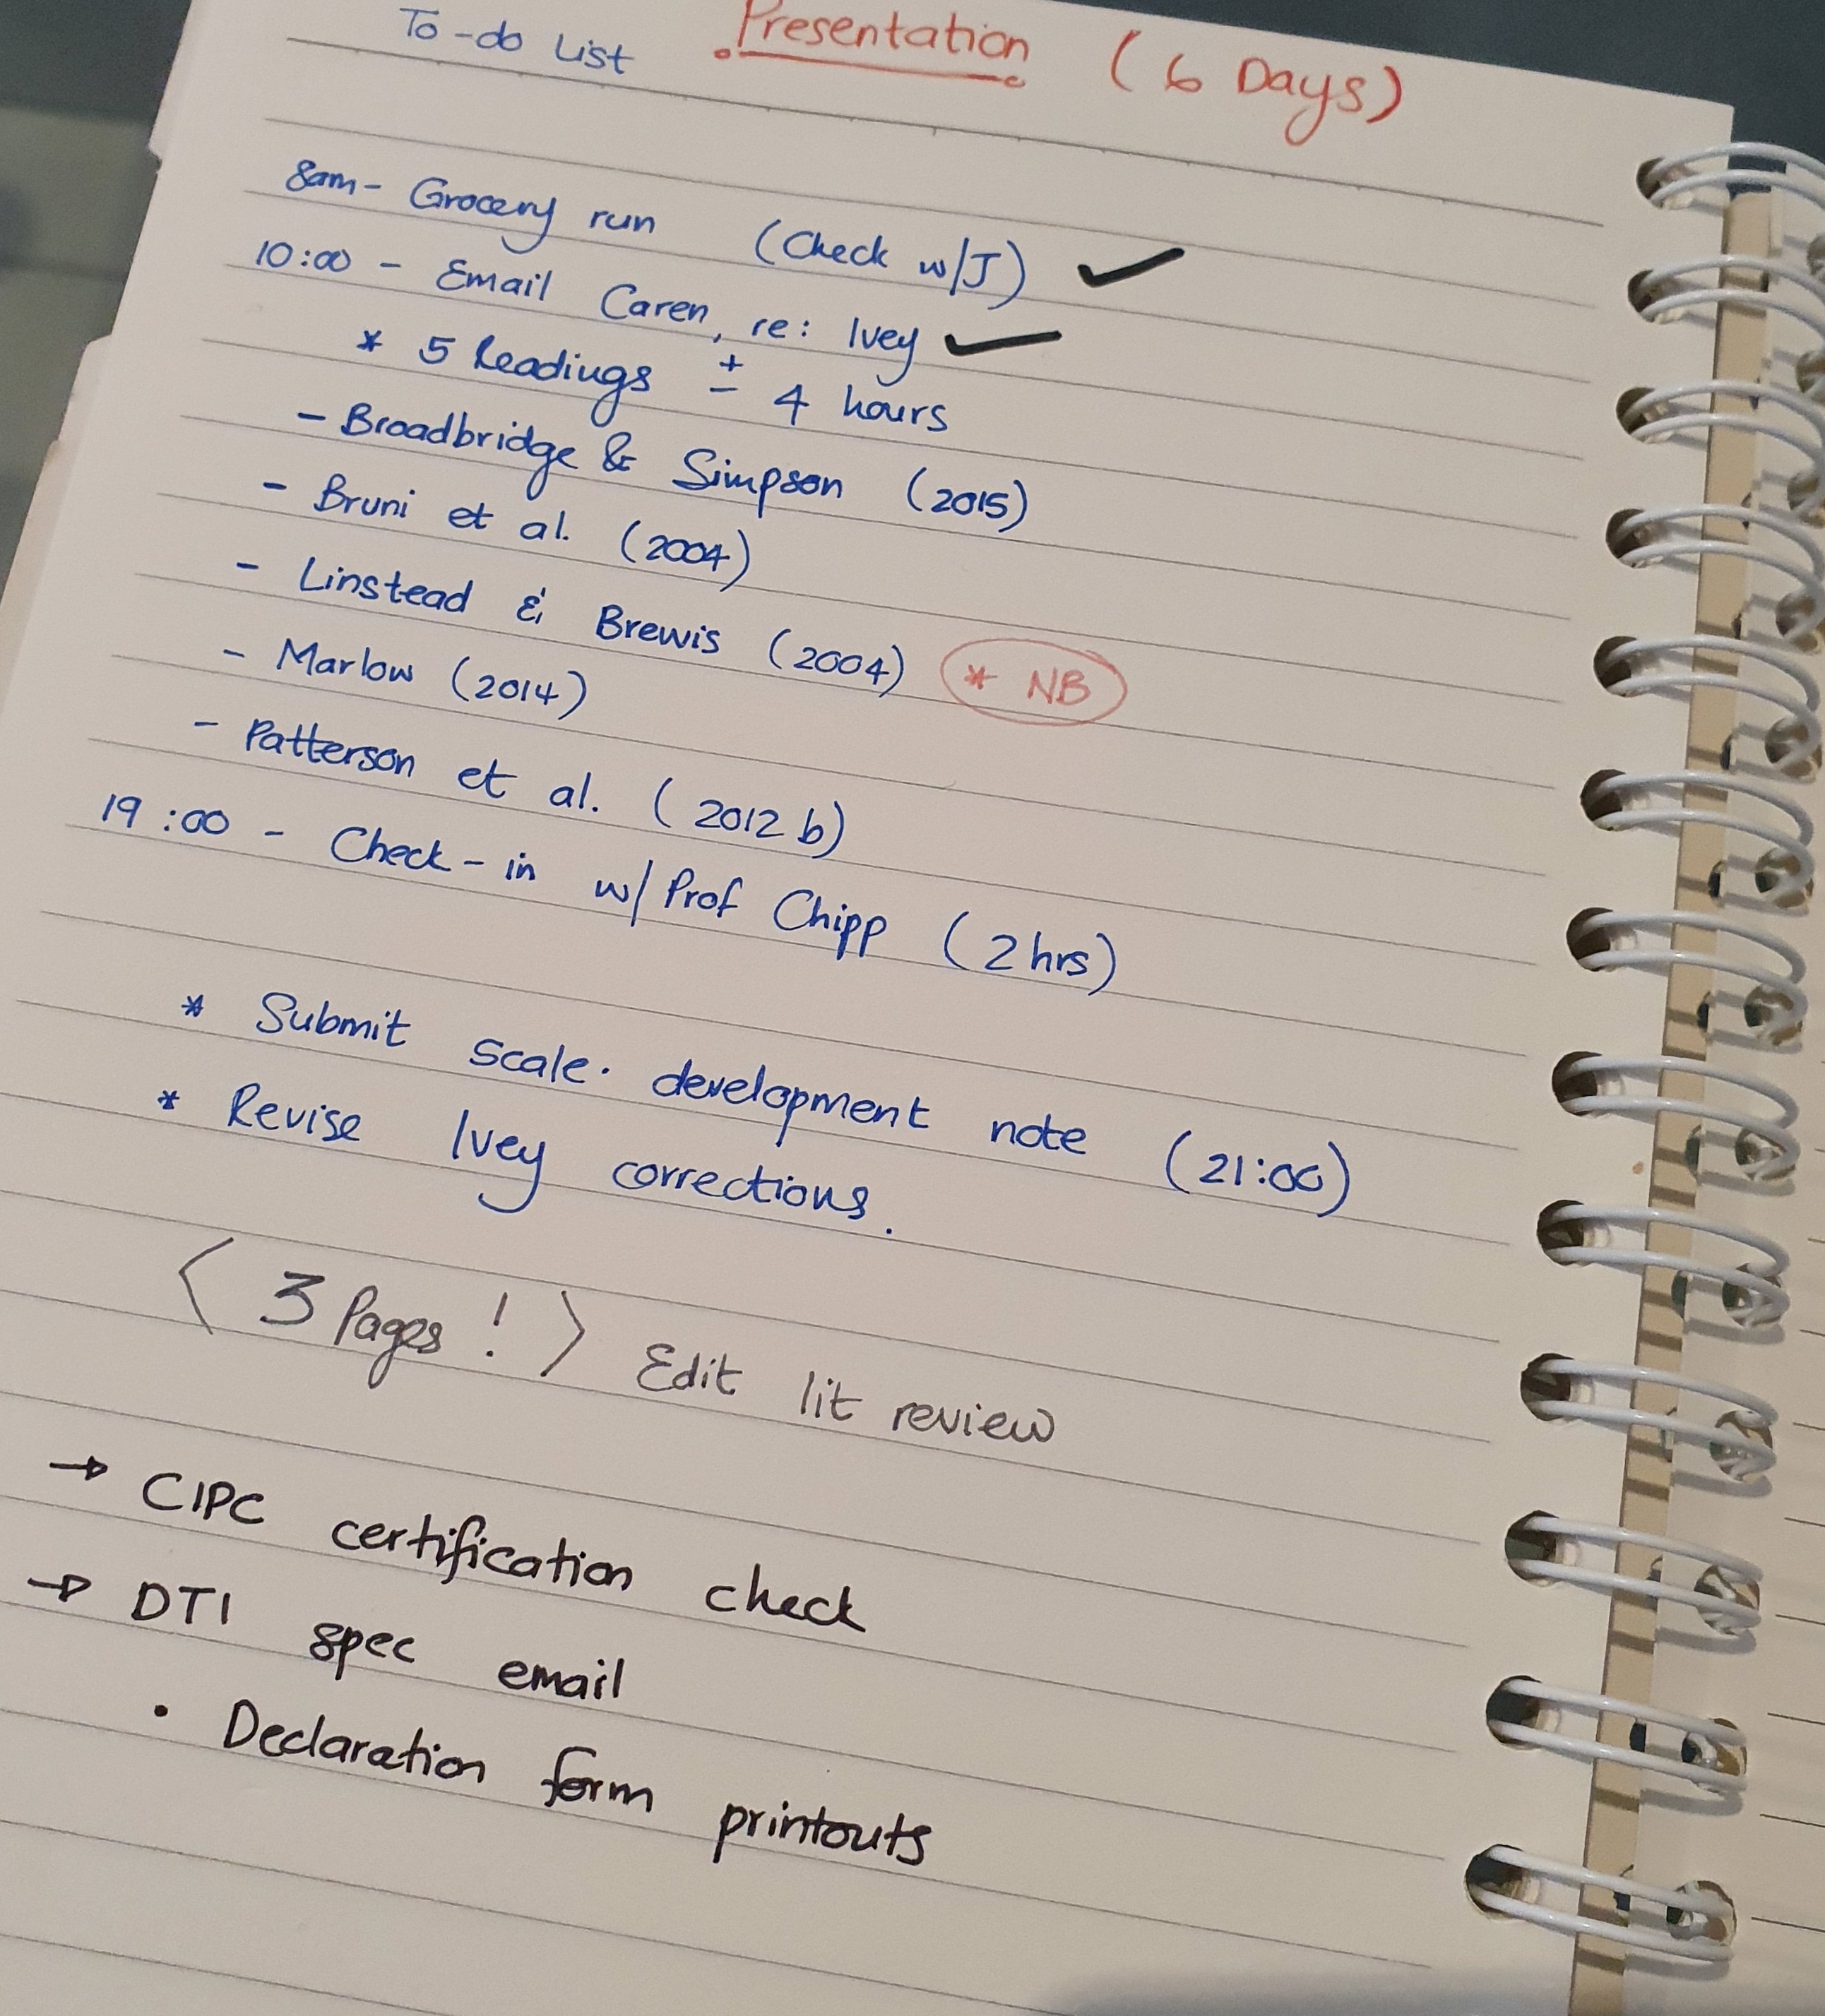 To-do List Presentation (6 Days)
8am- Grocery run (Check w/J) ✓
10:00 - Email Caren, re: Ivey ✓
* 5 Readings ± 4 hours
- Broadbridge & Simpson (2015)
- Bruni et al. (2004)
- Linstead & Brewis (2004) * NB
- Marlow (2014)
- Patterson et al. (2012 b)
19:00 - Check-in w/ Prof Chipp (2 hrs)
* Submit scale. development note (21:00)
* Revise Ivey corrections.
< 3 Pages! > Edit lit review
→ CIPC certification check
→ DTI spec email
• Declaration form printouts